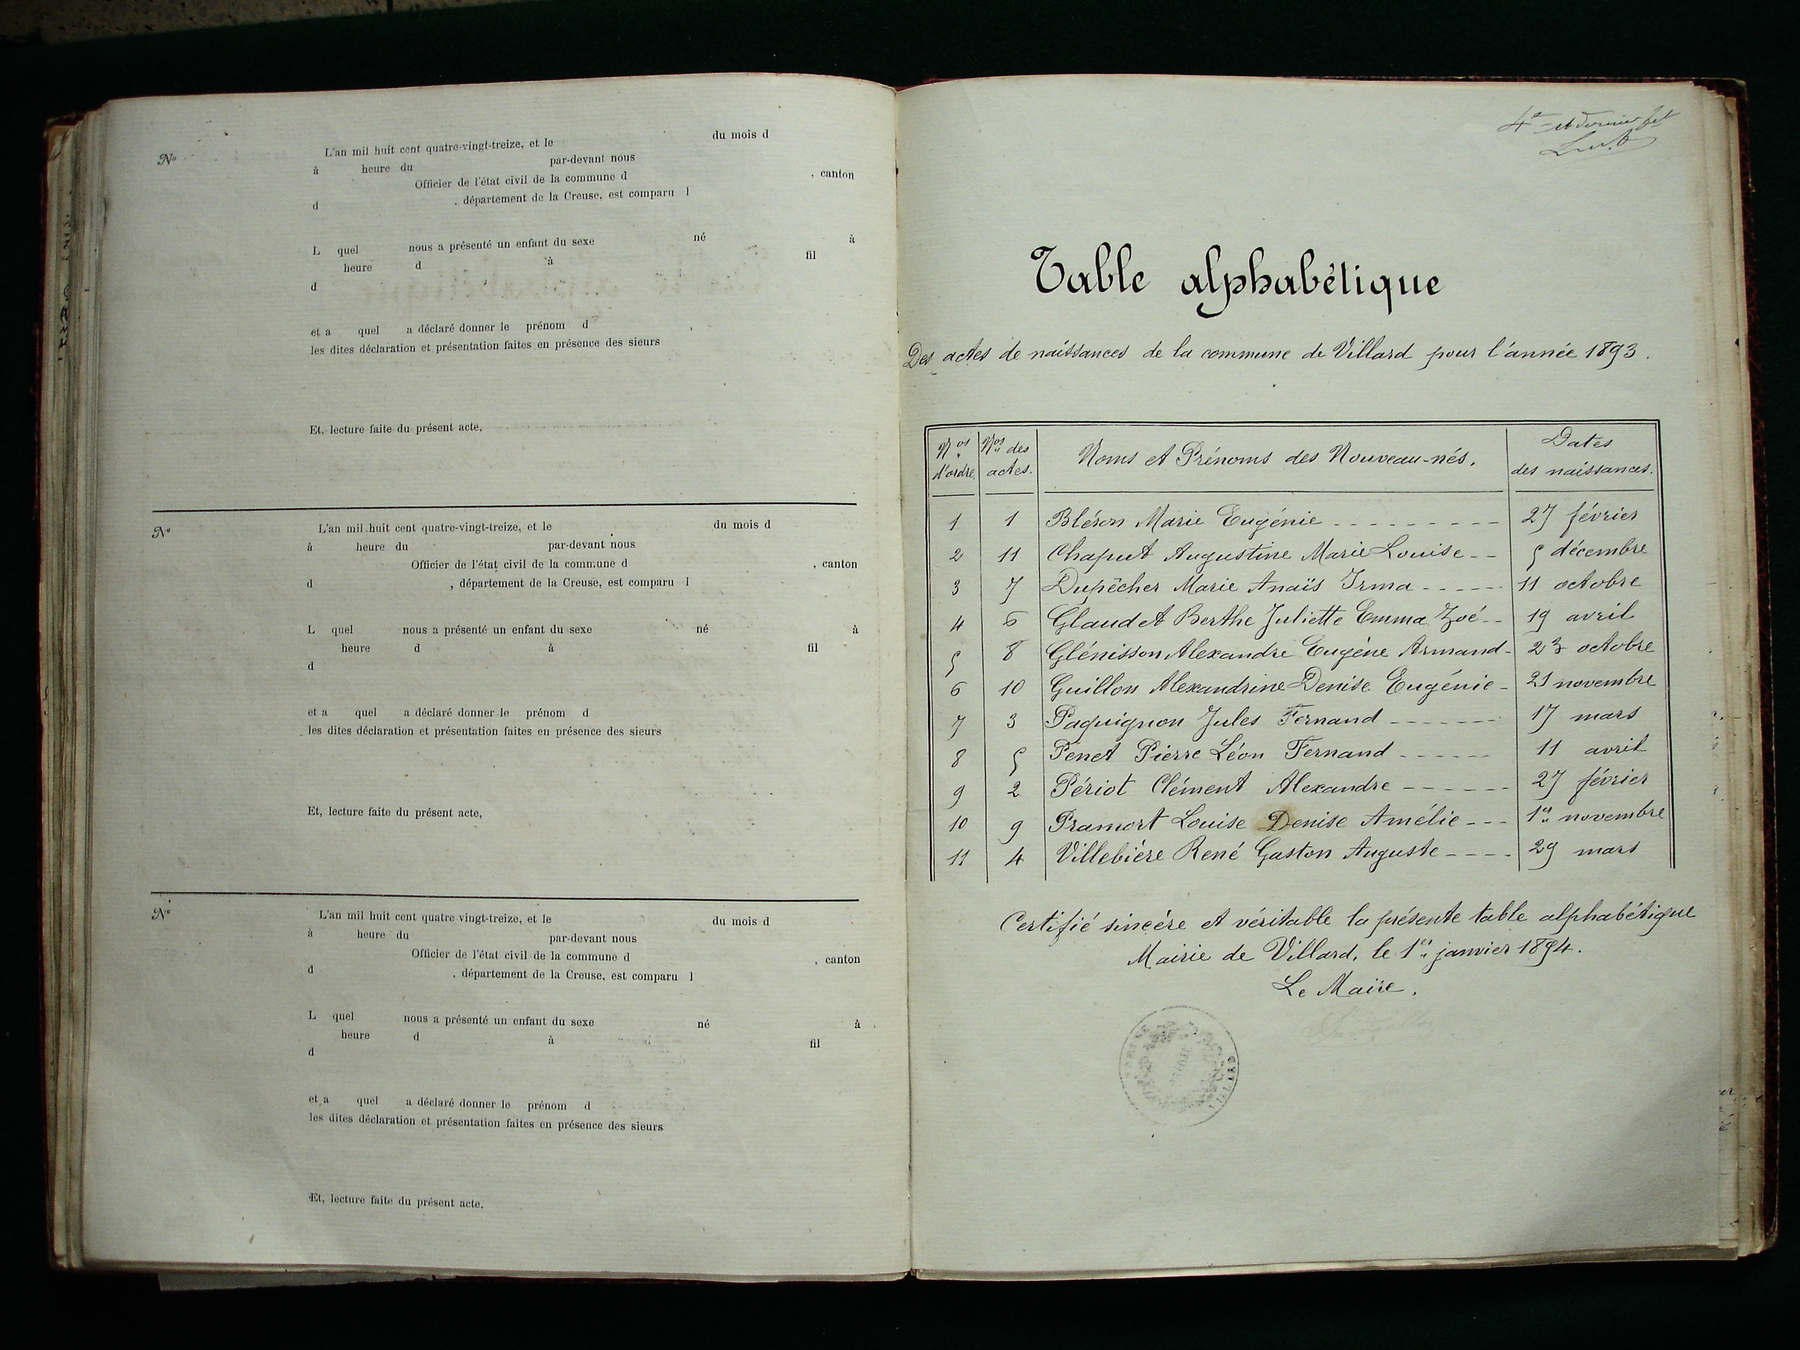 Nº
L'an mil huit cent quatre-vingt-treize, et le du mois d
à heure du par-devant nous
Officier de l'état civil de la commune d , canton
d , département de la Creuse, est comparu l
L quel nous a présenté un enfant du sexe né à
heure d à fil
d
et a quel a déclaré donner le prénom d
les dites déclaration et présentation faites en présence des sieurs
Et, lecture faite du présent acte,
Nº
L'an mil huit cent quatre-vingt-treize, et le du mois d
à heure du par-devant nous
Officier de l'état civil de la commune d , canton
d , département de la Creuse, est comparu l
L quel nous a présenté un enfant du sexe né à
heure d à fil
d
et a quel a déclaré donner le prénom d
les dites déclaration et présentation faites en présence des sieurs
Et, lecture faite du présent acte,
Nº
L'an mil huit cent quatre vingt-treize, et le du mois d
à heure du par-devant nous
Officier de l'état civil de la commune d , canton
d , département de la Creuse, est comparu l
L quel nous a présenté un enfant du sexe né à
heure d à fil
d
et a quel a déclaré donner le prénom d
les dites déclaration et présentation faites en présence des sieurs
Et, lecture faite du présent acte,
4e et dernier fet
Table alphabétique
Des actes de naissances de la commune de Villard pour l'année 1893.
Nos d'ordre Nos des actes. Noms et Prénoms des Nouveau-nés. Dates des naissances.
1 1 Bléron Marie Eugénie 27 février
2 11 Chaput Augustine Marie Louise 5 décembre
3 7 Dupêcher Marie Anaïs Irma 11 octobre
4 6 Glaudet Berthe Juliette Emma Zoé 19 avril
5 8 Glénisson Alexandre Eugène Armand 23 octobre
6 10 Guillon Alexandrine Denise Eugénie 21 novembre
7 3 Paquignon Jules Fernand 17 mars
8 5 Penet Pierre Léon Fernand 11 avril
9 2 Périot Clément Alexandre 27 février
10 9 Pramort Louise Denise Amélie 1er novembre
11 4 Villebière René Gaston Auguste 29 mars
Certifié sincère et véritable la présente table alphabétique
Mairie de Villard, le 1er janvier 1894.
Le Maire,